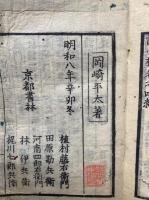 岡崎平太著
明和八年辛卯冬
京都書林
植村藤右衛門
田原勘兵衛
河南四郎右衛門
林伊兵衛
梶川七郎兵衛